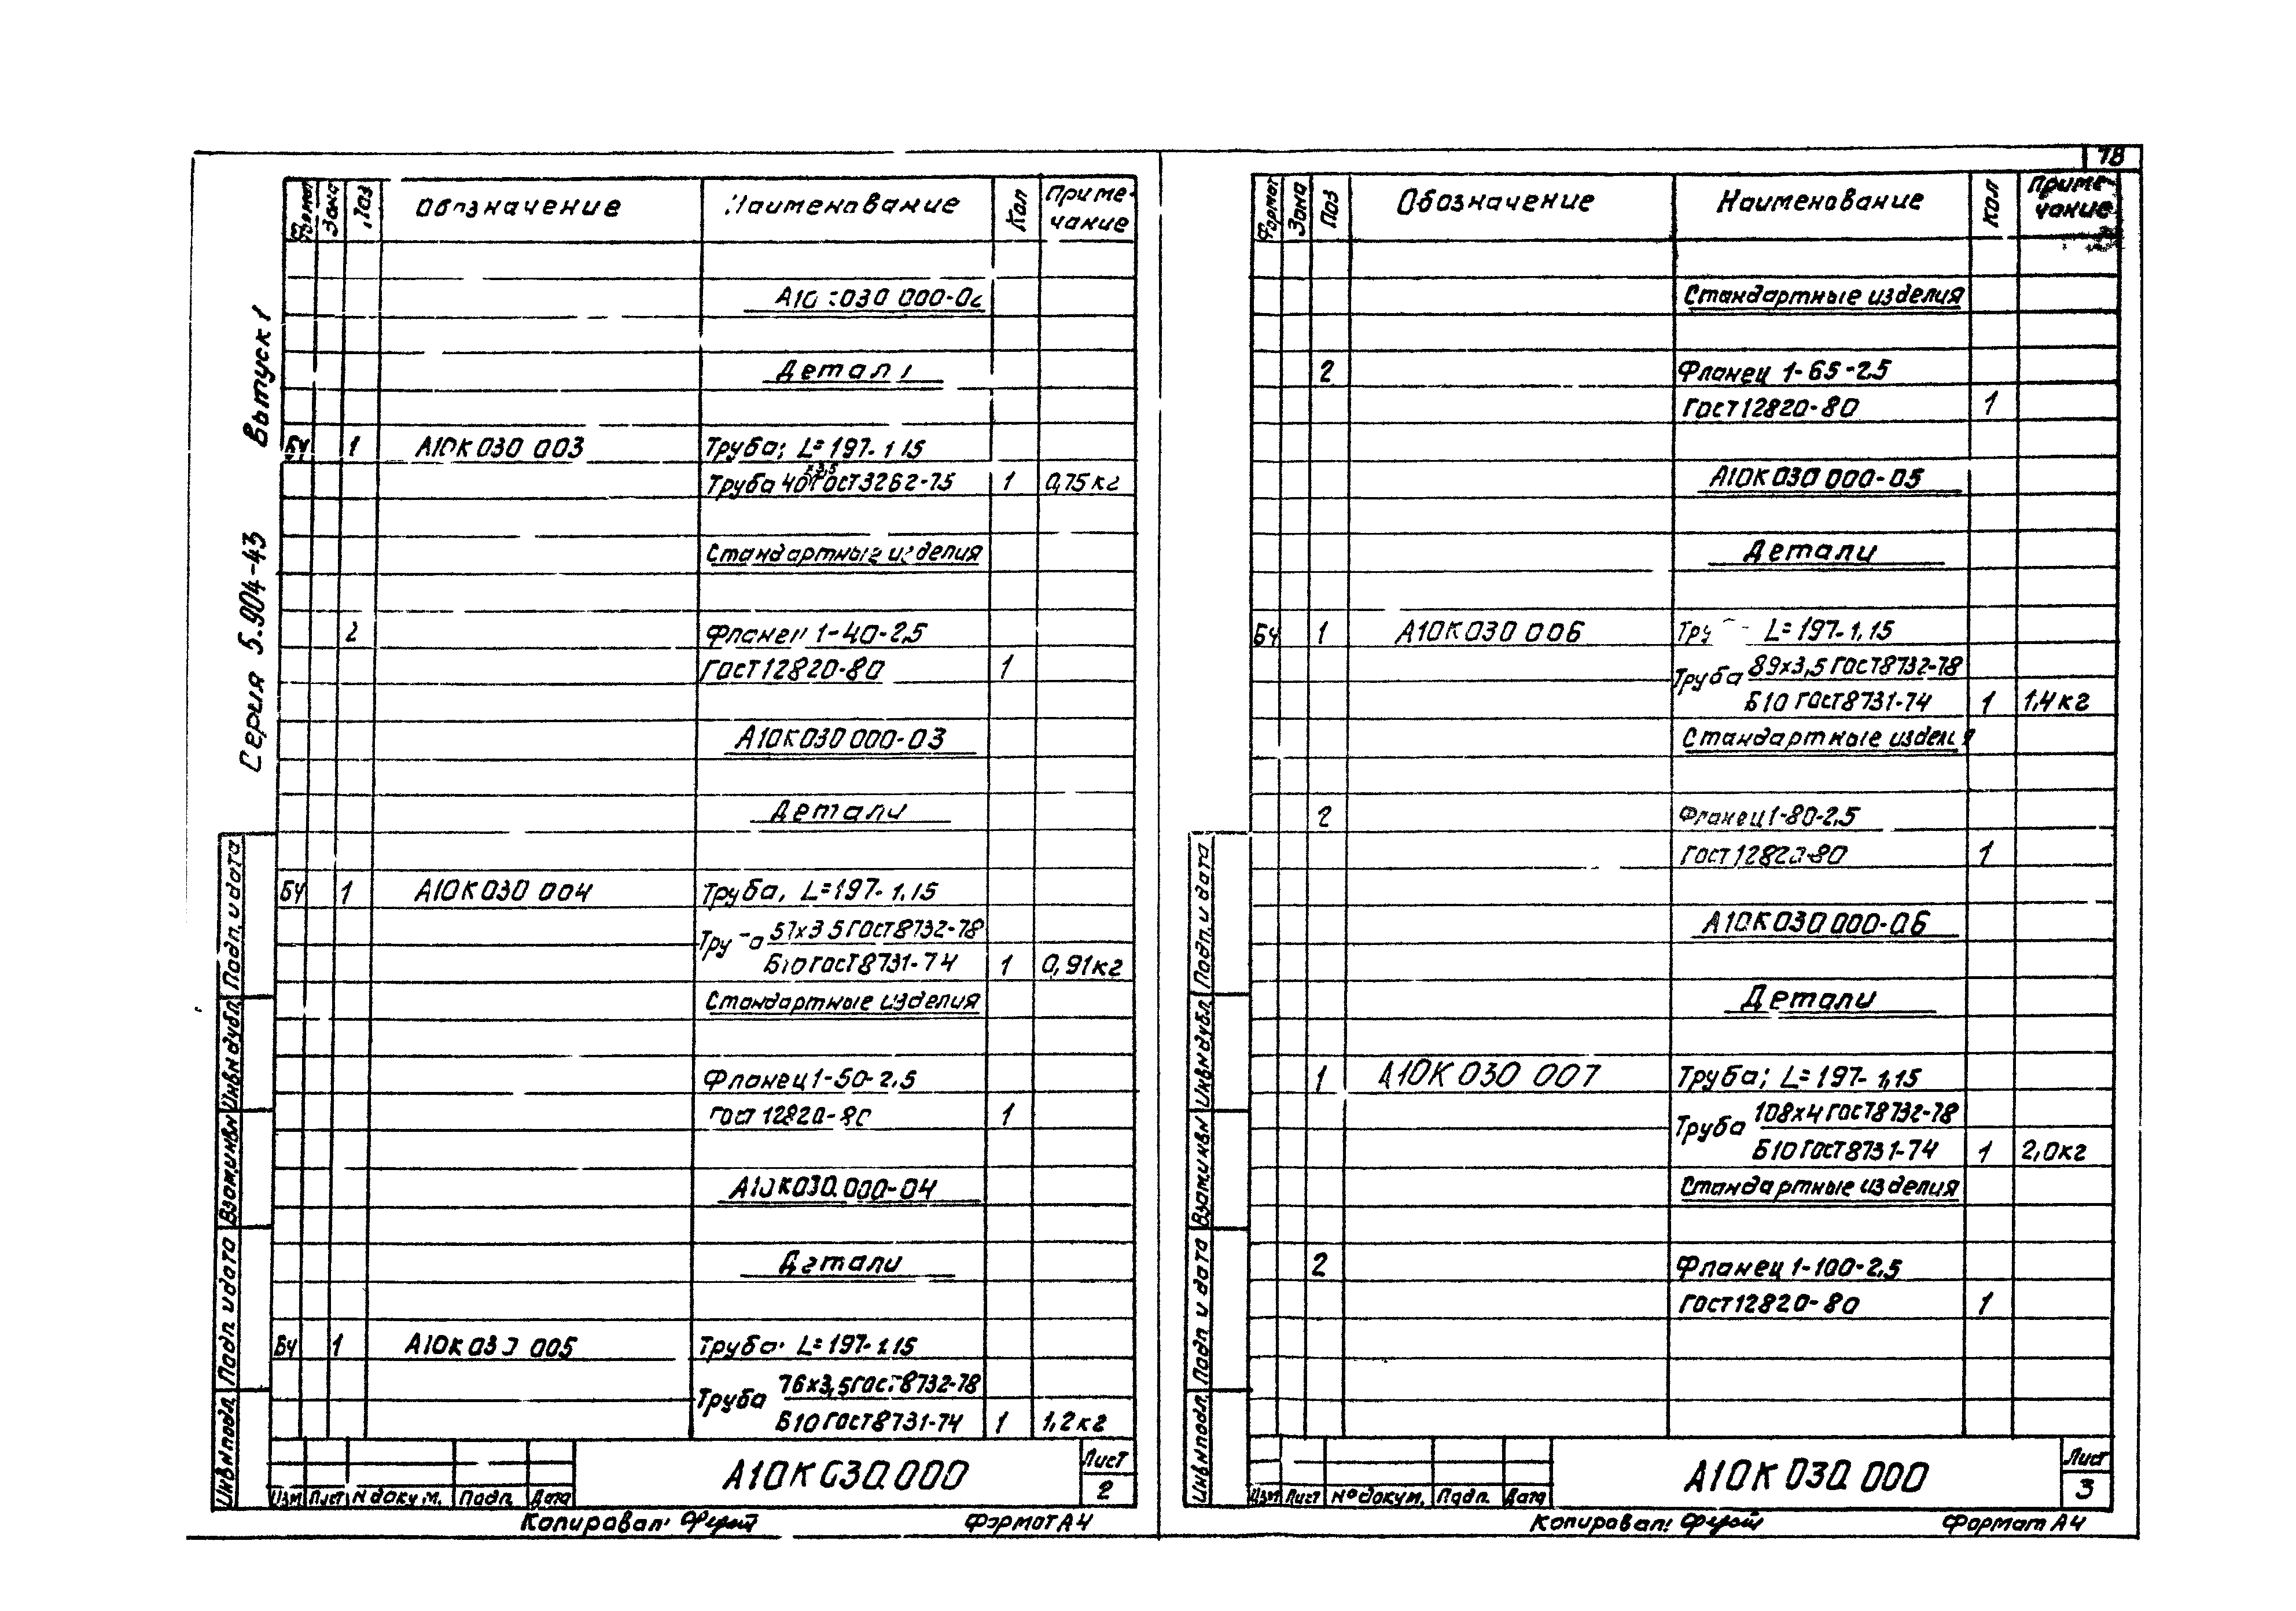 78
Серия 5.904-43 Выпуск 1
Формат Зона Поз Обозначение Наименование Кол Приме-
чание
А10К030 000-02
Детали
БЧ 1 А10К030 003 Труба; L=197-1.15
Труба 40х3,5 ГОСТ3262-75 1 0,75кг
Стандартные изделия
2 Фланец 1-40-2,5
ГОСТ12820-80 1
А10К030 000-03
Детали
БЧ 1 А10К030 004 Труба, L=197-1.15
Труба 57х3 5 ГОСТ8732-78
Б10 ГОСТ8731-74 1 0,91кг
Стандартные изделия
Фланец 1-50-2,5
ГОСТ 12820-80 1
А10К030.000-04
Детали
БЧ 1 А10К030 005 Труба L=197-1.15
Труба 76х3,5 ГОСТ8732-78
Б10 ГОСТ8731-74 1 1,2кг
Инв№подл. Подп. и дата Взам.инв№ Инв№дубл. Подп. и дата
Изм Лист №докум. Подп. Дата А10К030.000 Лист
2
Копировал: Формат А4
Формат Зона Поз Обозначение Наименование Кол Приме-
чание
Стандартные изделия
2 Фланец 1-65-2,5
ГОСТ12820-80 1
А10К030 000-05
Детали
БЧ 1 А10К030 006 Тру L=197-1,15
Труба 89х3,5 ГОСТ8732-78
Б10 ГОСТ8731-74 1 1,4кг
Стандартные изделия
2 Фланец 1-80-2,5
ГОСТ12820-80 1
А10К030.000-06
Детали
1 А10К030 007 Труба; L=197-1,15
Труба 108х4 ГОСТ8732-78
Б10 ГОСТ8731-74 1 2,0кг
Стандартные изделия
2 Фланец 1-100-2,5
ГОСТ12820-80 1
Инв№подл. Подп и дата Взам.инв№ Инв№дубл. Подп. и дата
Изм Лист №докум. Подп. Дата А10К030.000 Лист
3
Копировал: Формат А4